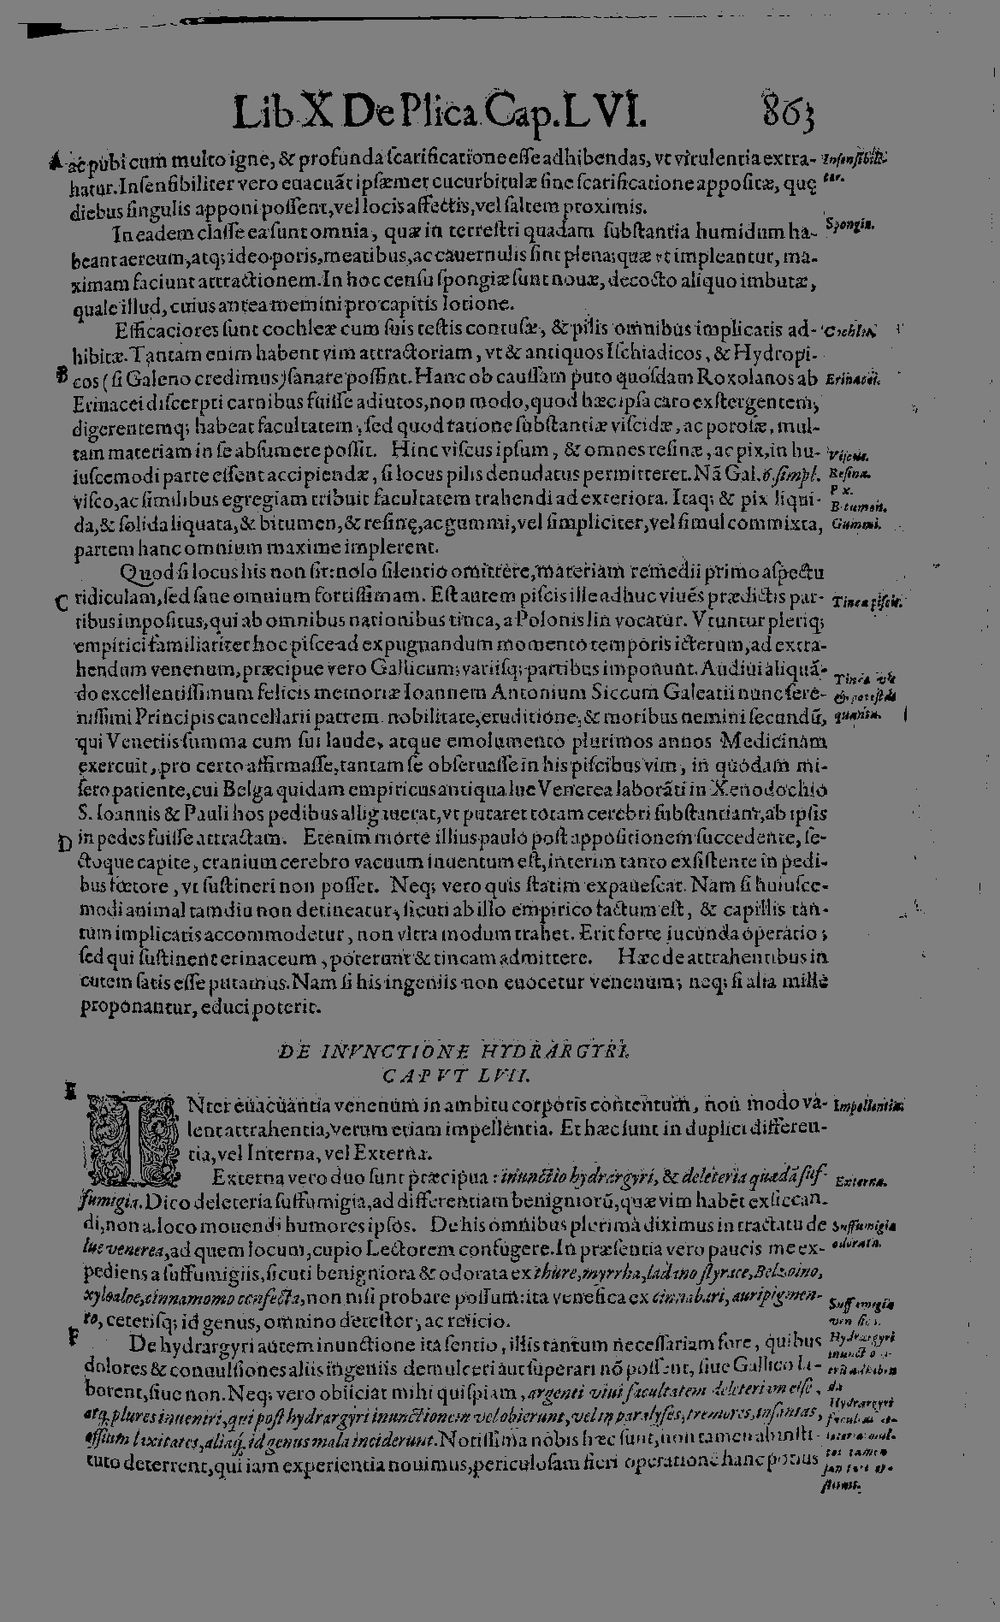 Lib. X De Plica Cap. LVI. 863
A ac pubi cum multo igne, & profunda scarificatione esse adhibendas, vt virulentia extra- Insensibili-
hatur. Insensibiliter vero euacuāt ipsæmet cucurbitulæ sine scarificatione appositæ, quę ter.
diebus singulis apponi possent, vel locis affectis, vel saltem proximis.
In eadem classe ea sunt omnia, quæ in terrestri quadam substantia humidum ha- Spongia.
beant aereum, atq; ideo poris, meatibus, ac cauernulis sint plena; quæ vt impleantur, ma-
ximam faciunt attractionem. In hoc censu spongiæ sunt nouæ, decocto aliquo imbutæ,
quale illud, cuius antea memini pro capitis lotione.
Efficaciores sunt cochleæ cum suis testis contusæ, & pilis omnibus implicatis ad- Cochleæ.
hibitæ. Tantam enim habent vim attractoriam, vt & antiquos Ischiadicos, & Hydropi-
B cos (si Galeno credimus) sanare possint. Hanc ob caussam puto quosdam Roxolanos ab Erinacei.
Erinacei discerpti carnibus fuisse adiutos, non modo, quod hæc ipsa caro exstergentem,
digerentemq; habeat facultatem, sed quod ratione substantiæ viscidæ, ac porosæ, mul-
tam materiam in se absumere possit. Hinc viscus ipsum, & omnes resinæ, ac pix, in hu- Viscus.
iuscemodi parte essent accipiendæ, si locus pilis denudatus permitteret. Nā Gal. 6. simpl. Resina.
visco, ac similibus egregiam tribuit facultatem trahendi ad exteriora. Itaq; & pix liqui- Pix. Bitumen.
da, & solida liquata, & bitumen, & resinę, ac gummi, vel simpliciter, vel simul commixta, Gummi.
partem hanc omnium maxime implerent.
Quod si locus his non sit: nolo silentio omittere, materiam remedii primo aspectu
C ridiculam, sed sane omnium fortissimam. Est autem piscis ille adhuc viuēs prædictis par- Tinca piscis.
tibus impositus, qui ab omnibus nationibus tinca, a Polonis lin vocatur. Vtuntur pleriq;
empirici familiariter hoc pisce ad expugnandum momento temporis icterum, ad extra-
hendum venenum, præcipue vero Gallicum; variisq; partibus imponunt. Audiui aliquā-
do excellentissimum felicis memoriæ Ioannem Antonium Siccum Galeatii nunc sere-
nissimi Principis cancellarii patrem nobilitate, eruditione, & moribus nemini secundū, quanta.
qui Venetiis summa cum sui laude, atque emolumento plurimos annos Medicinam
exercuit, pro certo affirmasse, tantam se obseruasse in his piscibus vim, in quodam mi-
sero patiente, cui Belga quidam empiricus antiqua lue Venerea laborāti in Xenodochio
S. Ioannis & Pauli hos pedibus alligauerat, vt putaret totam cerebri substantiam, ab ipsis
D in pedes fuisse attractam. Etenim morte illius paulo post appositionem succedente, se-
ctoque capite, cranium cerebro vacuum inuentum est, interim tanto exsistente in pedi-
bus fœtore, vt sustineri non posset. Neq; vero quis statim expauescat. Nam si huiusce-
modi animal tamdiu non detineatur, sicuti ab illo empirico factum est, & capillis tan-
tum implicatis accommodetur, non vltra modum trahet. Erit forte iucunda operatio;
sed qui sustinent erinaceum, poterunt & tincam admittere. Hæc de attrahentibus in
cutem satis esse putamus. Nam si his ingeniis non euocetur venenum; neq; si alia mille
proponantur, educi poterit.
DE INVNCTIONE HYDRARGYRI.
CAPVT LVII.
E
INter euacuantia venenum in ambitu corporis contentum, non modo va- Impellentia.
lent attrahentia, verum etiam impellentia. Et hæc sunt in duplici differen-
tia, vel Interna, vel Externa.
Externa vero duo sunt præcipua: inunctio hydrargyri, & deleteria quædā suf- Externa.
fumigia. Dico deleteria suffumigia, ad differentiam benigniorū, quæ vim habēt exsiccan-
di, non a loco mouendi humores ipsos. De his omnibus plerima diximus in tractatu de Suffumigia
lue venerea, ad quem locum, cupio Lectorem confugere. In præsentia vero paucis me ex- odorata.
pediens a suffumigiis, sicuti benigniora & odorata ex thure, myrrha, ladano styrace, Belzoino,
xyloaloe, cinnamomo confecta, non nisi probare possum: ita venefica ex cinnabari, auripigmen- Suffumigia
to, ceterisq; id genus, omnino detestor, ac reiicio.
F De hydrargyri autem inunctione ita sentio, illis tantum necessariam fore, quibus Hydrargyri
dolores & conuulsiones aliis ingeniis demulceri aut superari nō possent, siue Gallico la-
borent, siue non. Neq; vero obiiciat mihi quispiam, argenti viui facultatem deleteriam esse,
atq. plures inueniri, qui post hydrargyri inunctionem vel obierunt, vel in paralyses, tremores, insanias, Hydrargyri
ossium laxitates, aliaq. id genus mala inciderunt. Notissima nobis hæc sunt, non tamen ab insti-
tuto deterrent, qui iam experientia nouimus, periculosam fieri operatione hanc potius